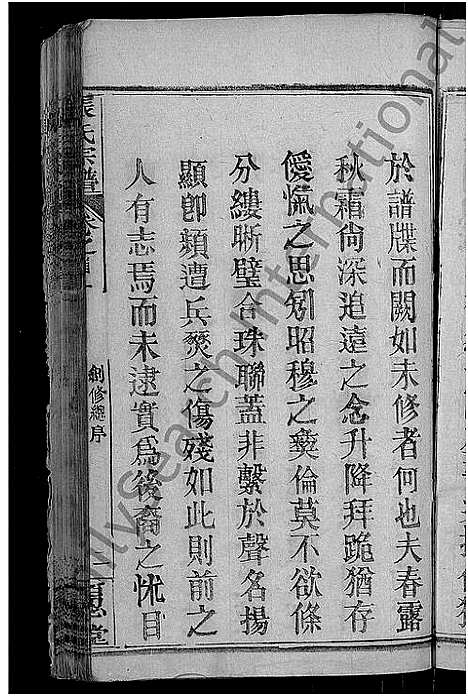 於譜牒而闕如未修者何也夫春露
秋霜尙深追遠之念升降拜跪猶存
僾愾之思矧昭穆之彝倫莫不欲條
分縷晰璧合珠聯蓋非繫於聲名揚
顯卽頻遭兵燹之傷殘如此則前之
人有志焉而未逮實爲後裔之怵目
張氏宗譜
卷之首
創修總序
一
堂
FamilySearch International